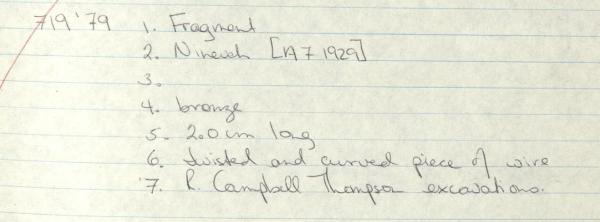 719'79 1. Fragment
2. Nineveh [A 7 1929]
3.
4. bronze
5. 2.0 cm long
6. twisted and curved piece of wire
7. R. Campbell Thompson excavations.